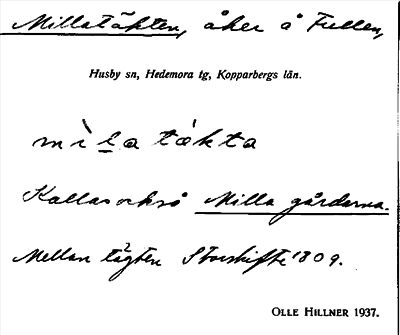 Millatäkten, åker å Fullen,
Husby sn, Hedemora tg, Kopparbergs län.
mìla tá̤kta
Kallas också Milla gårdarna.
Mellan tägten Storskifte 1809.
OLLE HILLNER 1937.